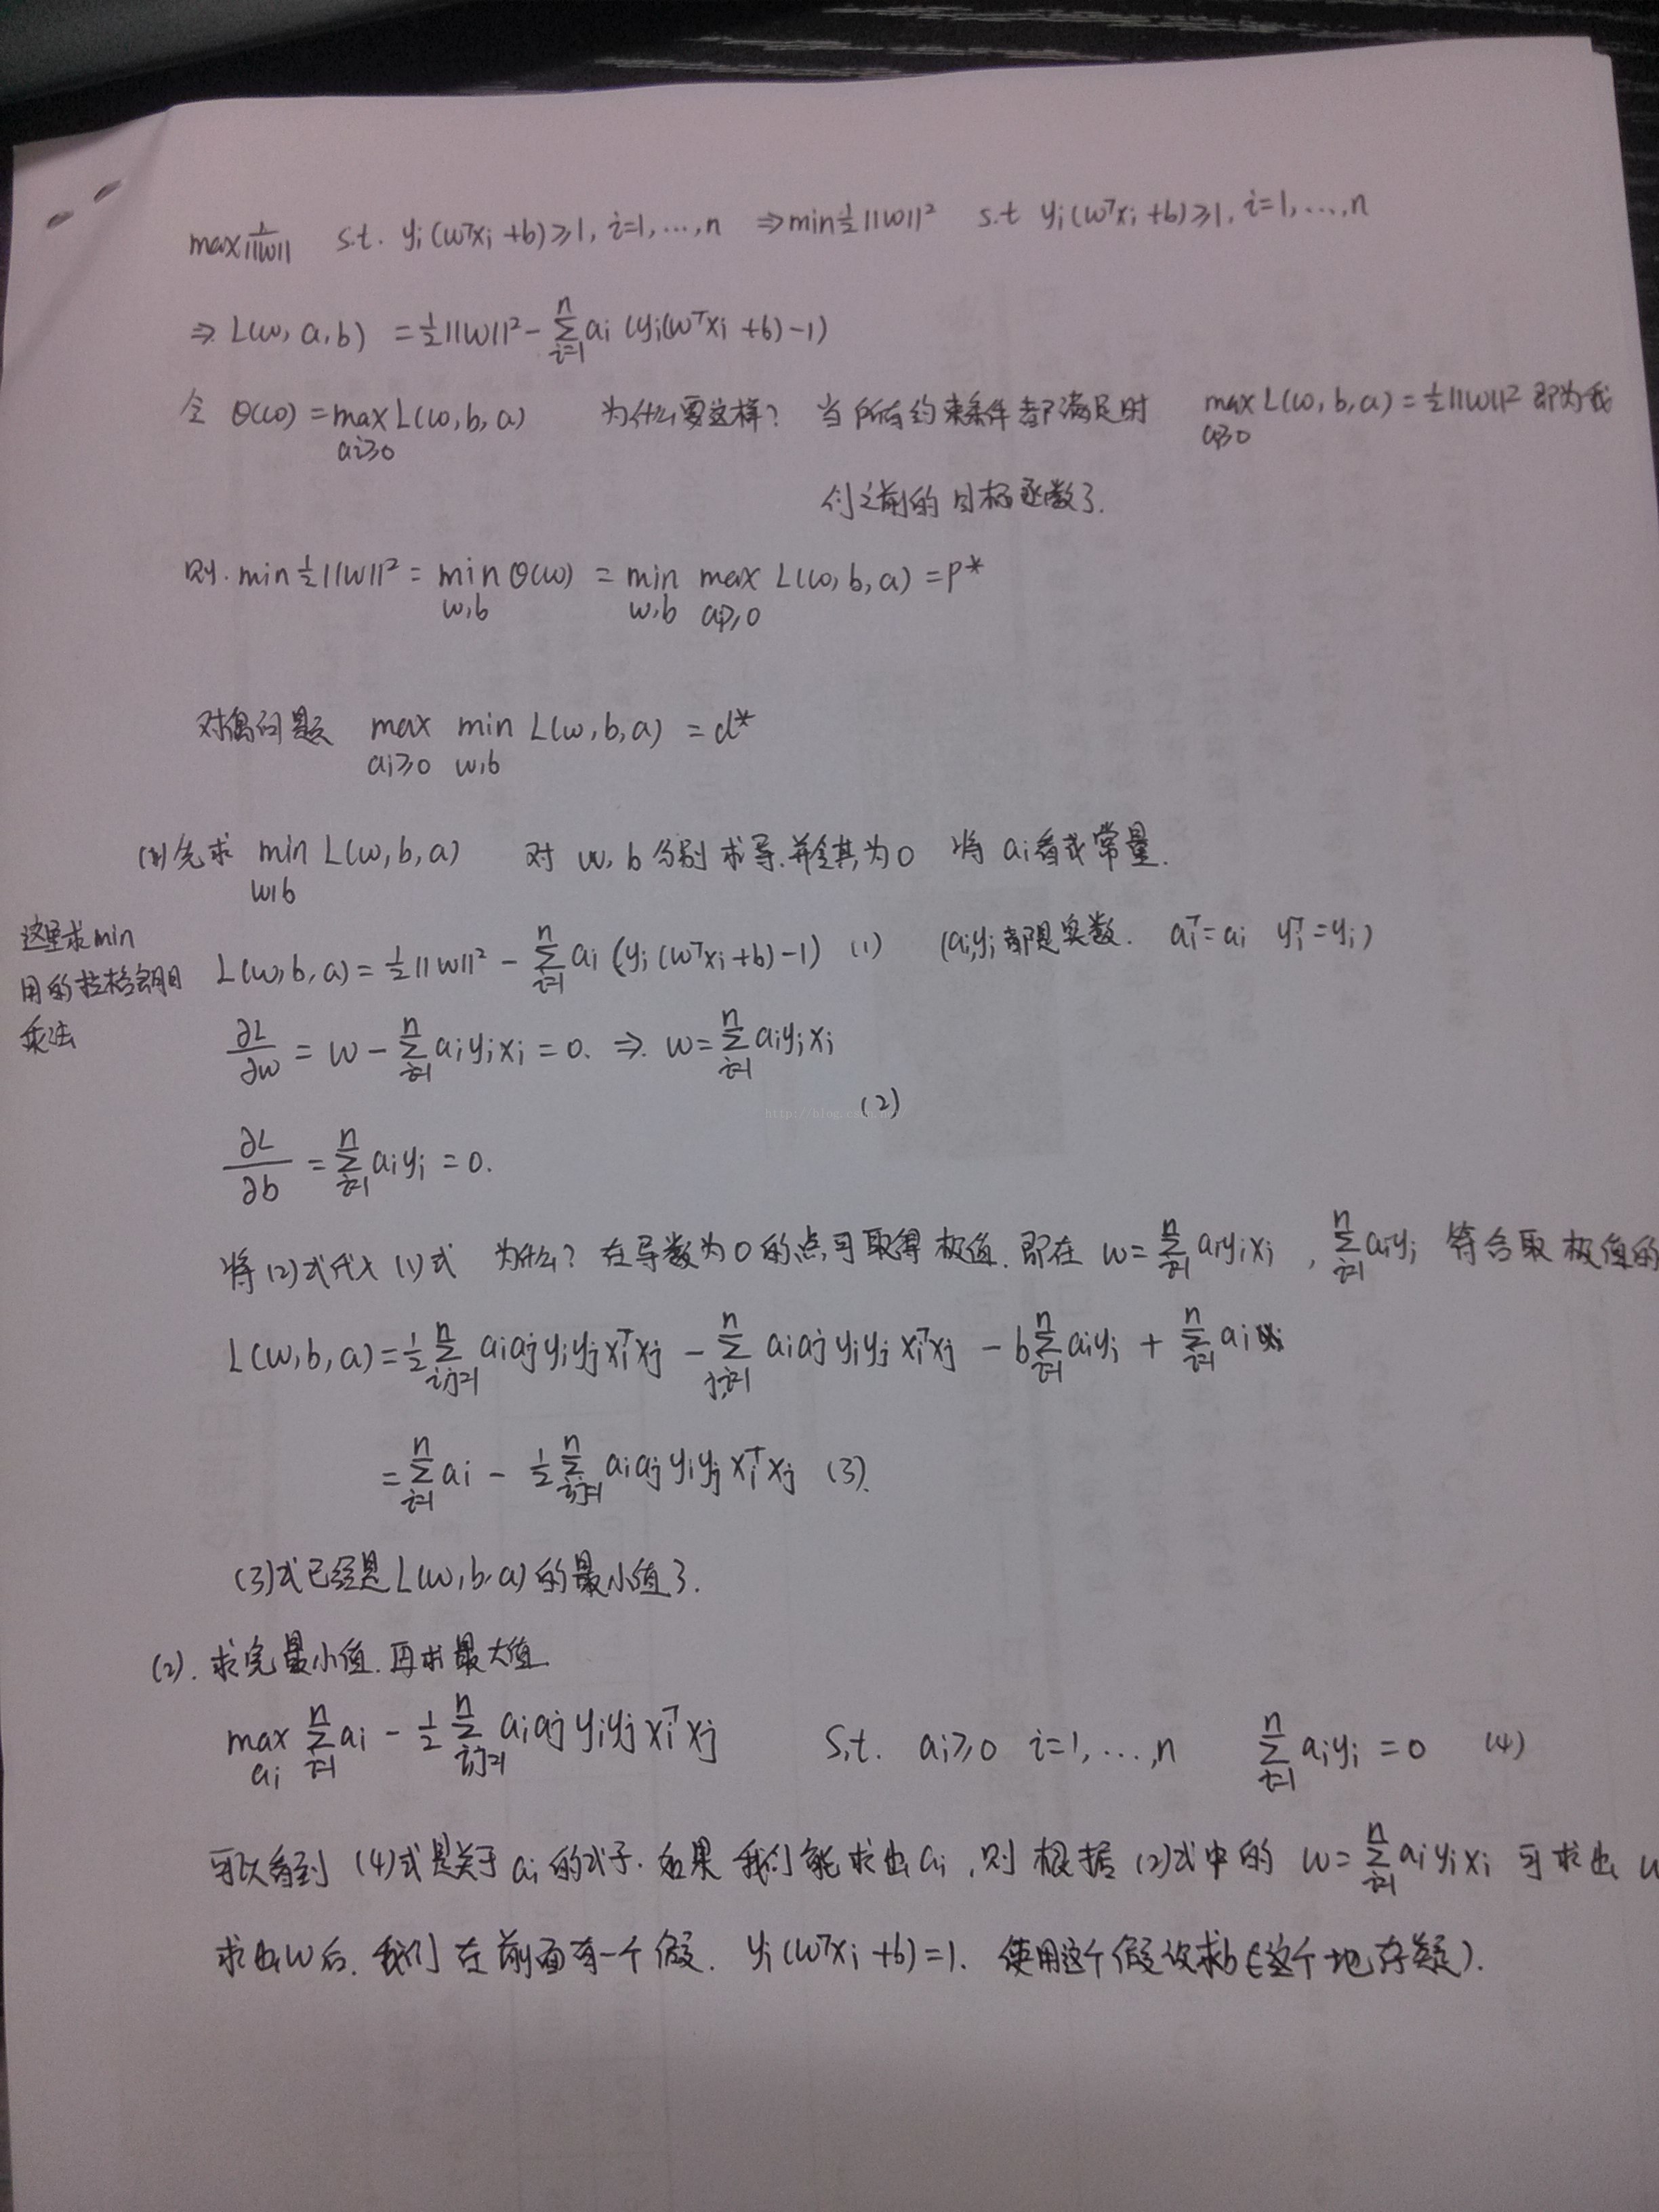 max 1/||w|| s.t. yᵢ(wᵀxᵢ+b)≥1, i=1,…,n ⇒ min ½||w||² s.t yᵢ(wᵀxᵢ+b)≥1, i=1,…,n
⇒ L(w,a,b) = ½||w||² - Σᵢ₌₁ⁿ aᵢ(yᵢ(wᵀxᵢ+b)-1)
令 θ(w) = max_{aᵢ≥0} L(w,b,a) 为什么要这样? 当所有约束条件都满足时 max_{aᵢ≥0} L(w,b,a) = ½||w||² 即为我
们之前的目标函数了.
则. min ½||w||² = min_{w,b} θ(w) = min_{w,b} max_{aᵢ≥0} L(w,b,a) = p*
对偶问题 max_{aᵢ≥0} min_{w,b} L(w,b,a) = d*
(1)先求 min_{w,b} L(w,b,a) 对 w, b 分别求导.并令其为0 将 aᵢ看成常量.
这里求min
用的拉格朗日
乘法
L(w,b,a) = ½||w||² - Σᵢ₌₁ⁿ aᵢ(yᵢ(wᵀxᵢ+b)-1) (1) (aᵢyᵢ都是实数. aᵢᵀ=aᵢ yᵢᵀ=yᵢ)
∂L/∂w = w - Σᵢ₌₁ⁿ aᵢyᵢxᵢ = 0. ⇒. w = Σᵢ₌₁ⁿ aᵢyᵢxᵢ
(2)
∂L/∂b = Σᵢ₌₁ⁿ aᵢyᵢ = 0.
将(2)式代入(1)式 为什么? 在导数为0的点,可取得极值. 即在 w = Σᵢ₌₁ⁿ aᵢyᵢxᵢ , Σᵢ₌₁ⁿ aᵢyᵢ 符合取极值的
L(w,b,a) = ½ Σᵢ,ⱼ₌₁ⁿ aᵢaⱼyᵢyⱼxᵢᵀxⱼ - Σⱼ,ᵢ₌₁ⁿ aᵢaⱼyᵢyⱼxᵢᵀxⱼ - b Σᵢ₌₁ⁿ aᵢyᵢ + Σᵢ₌₁ⁿ aᵢ
= Σᵢ₌₁ⁿ aᵢ - ½ Σᵢ,ⱼ₌₁ⁿ aᵢaⱼyᵢyⱼxᵢᵀxⱼ (3).
(3)式已经是L(w,b,a)的最小值了.
(2). 求完最小值.再求最大值
max_{aᵢ} Σᵢ₌₁ⁿ aᵢ - ½ Σᵢ,ⱼ₌₁ⁿ aᵢaⱼyᵢyⱼxᵢᵀxⱼ s.t. aᵢ≥0 i=1,…,n Σᵢ₌₁ⁿ aᵢyᵢ = 0 (4)
可以看到 (4)式是关于 aᵢ的式子. 如果我们能求出aᵢ,则根据(2)式中的 w = Σᵢ₌₁ⁿ aᵢyᵢxᵢ 可求出 w
求出w后. 我们在前面有一个假设. yᵢ(wᵀxᵢ+b)=1. 使用这个假设求b(这个地存疑).